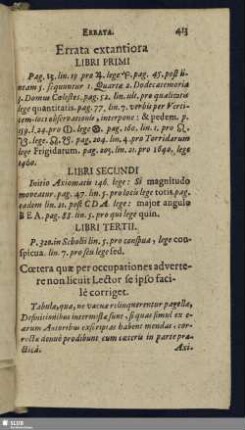 ERRATA. 413
Errata extantiora
LIBRI PRIMI
Pag. 15. lin. 19. pro ♃. lege ♈. pag. 45. post li-
neam 5. sequuntur 1. Quartæ 2. Dodecatemoria
3. Domus Cœlestes. pag. 52. lin. ult. pro qualitatis
lege quantitatis. pag. 77. lin. 7. verbis per Verti-
cem loci observationis, interpone: & pedem. p.
lin. 1. pro ♌.
lege. ♌. pag. 204. lin. 4. pro Torridarum
lege Frigidarum. pag. 205. lin. 21. pro 1640. lege
1460.
LIBRI SECUNDI
Initio Axiomatis 146. lege: Si magnitudo
moveatur. pag. 47. lin. 5. pro locis lege totis. pag.
eadem lin. 21. post CDA. lege: major angulo
BEA. pag. 88. lin. 5. pro qui lege quin.
LIBRI TERTII.
P. 320. in Scholii lin. 5. pro conspua, lege con-
spicua. lin. 7. pro seu lege sed.
Cœtera quæ per occupationes adverte-
re non licuit Lector se ipso faci-
lè corriget.
Tabulæ, quæ, ne vacuæ relinquerentur pagellæ,
Definitionibus intermistæ sunt, si quas simul ex e-
arum Autoribus exscriptas habent mendas, cor-
rectæ denuò prodibunt cum cæteris in parte pra-
cticâ.
Axi-
SLUB